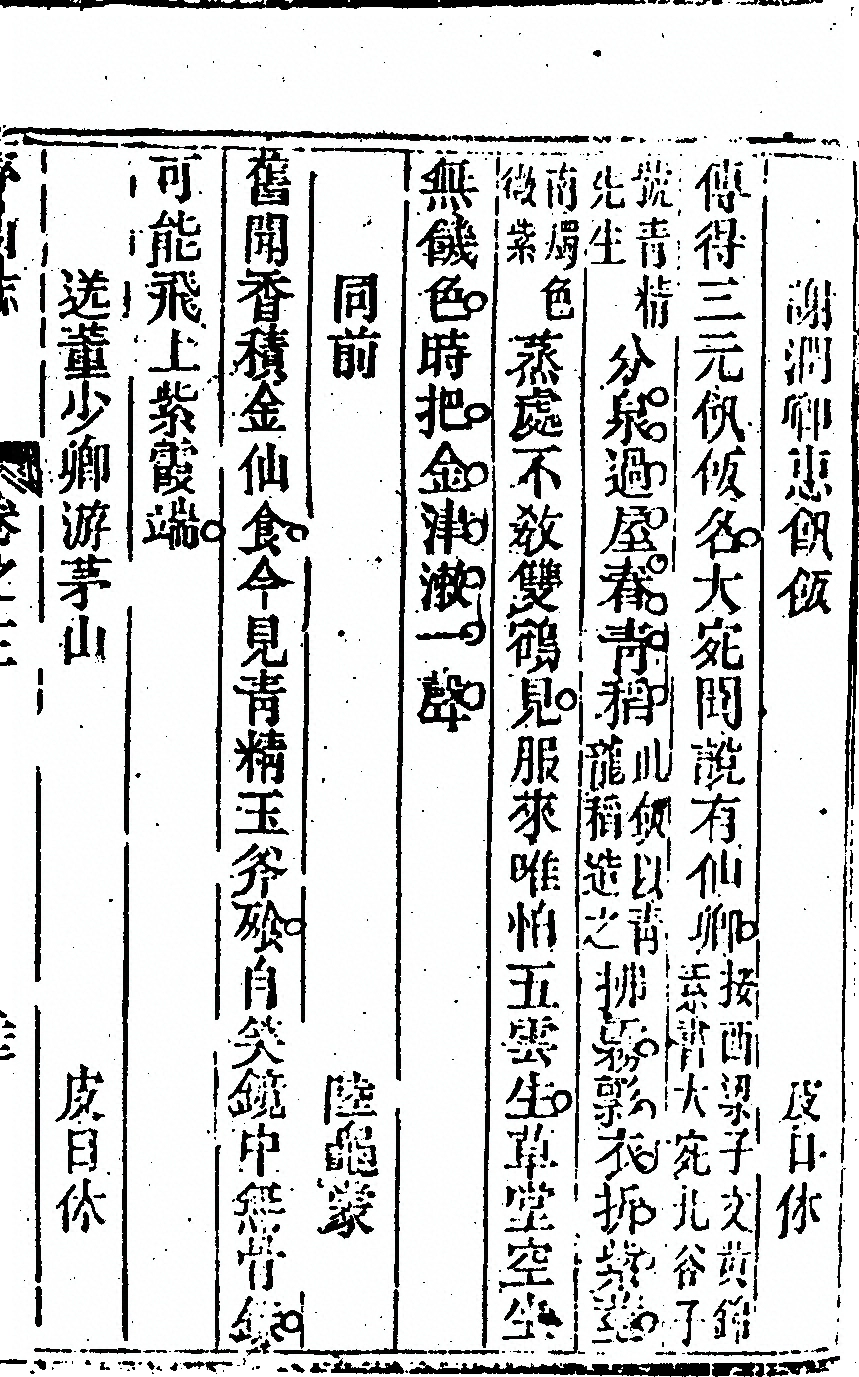 謝潤卿惠飯　皮日休
傳得三元飯名大宛聞說有仙卿按酉梁子文黃錦素書大宛北谷子
號青精先生分泉過屋舂青稻此飯以青龍稻造之拂霧彯衣折紫莖
南燭色微紫蒸處不教雙鶴見服來唯怕五雲生草堂空坐
無饑色時把金津漱一聲
同前　陸龜蒙
舊聞香積金仙食今見青精玉斧飱自笑鏡中無骨錄
可能飛上紫霞端
送董少卿游茅山　皮日休
卷之三